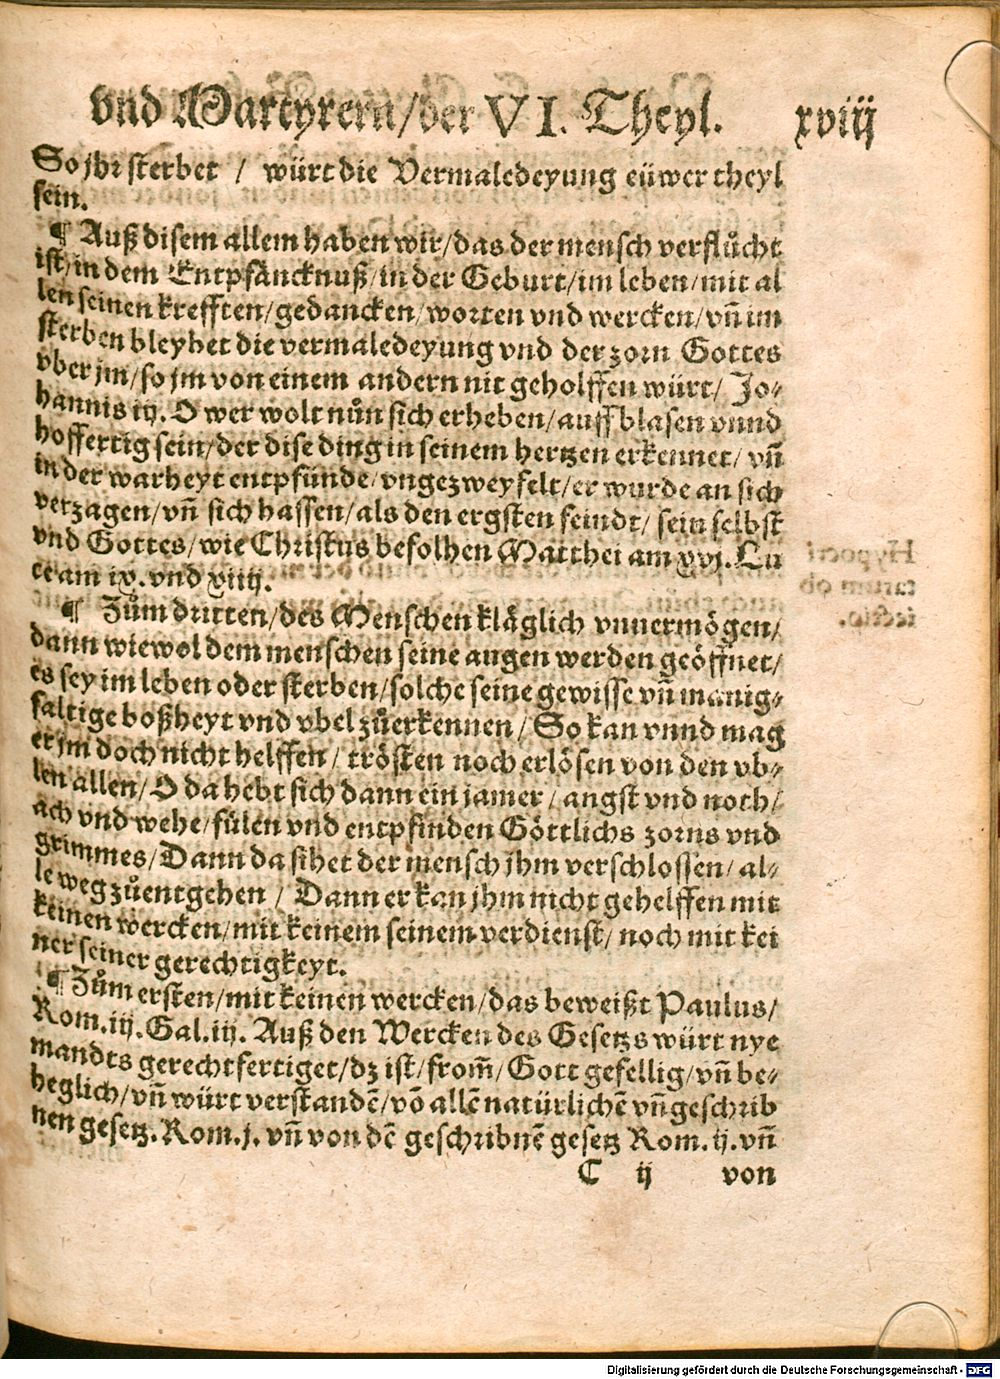 vnd Martyrern/der VI. Theyl. xviij
So jhr sterbet / würt die Vermaledeyung eüwer theyl
sein.
¶ Auß disem allem haben wir/das der mensch verflůcht
ist/in dem Entpfäncknuß/in der Geburt/im leben/mit al
len seinen krefften/gedancken/worten vnd wercken/vñ im
sterben bleybet die vermaledeyung vnd der zorn Gottes
vber jm/so jm von einem andern nit geholffen würt/ Jo-
hannis iij. O wer wolt nůn sich erheben/auffblasen vnnd
hoffertig sein/der dise ding in seinem hertzen erkennet/ vñ
in der warheyt entpfünde/vngezweyfelt/er wurde an sich
verzagen/vñ sich hassen/als den ergsten feindt/ sein selbst
vnd Gottes/wie Christus befolhen Matthei am xvj. Lu
ce am ix. vnd xiiij.
¶ Zům dritten/des Menschen kläglich vnuermögen/
dann wiewol dem menschen seine augen werden geöffnet/
es sey im leben oder sterben/solche seine gewisse vñ manig-
faltige boßheyt vnd vbel zůerkennen/ So kan vnnd mag
er jm doch nicht helffen/ trösten noch erlösen von den vb-
len allen/O da hebt sich dann ein jamer/angst vnd noth/
ach vnd wehe/fülen vnd entpfinden Göttlichs zorns vnd
grimmes/Dann da sihet der mensch jhm verschlossen/ al-
le weg zůentgehen / Dann er kan jhm nicht gehelffen mit
keinen wercken/mit keinem seinem verdienst/ noch mit kei
ner seiner gerechtigkeyt.
¶ Zům ersten/mit keinen wercken/das beweißt Paulus/
Rom.iij. Gal.iij. Auß den Wercken des Gesetzs würt nye
mandts gerechtfertiget/dz ist/from̃/Gott gefellig/vñ be-
heglich/vñ würt verstandẽ/võ allẽ natürlichẽ vñ geschrib
nen gesetz. Rom.j. vñ von dẽ geschribnẽ gesetz Rom. ij. vñ
C ij von
Digitalisierung gefördert durch die Deutsche Forschungsgemeinschaft - DFG